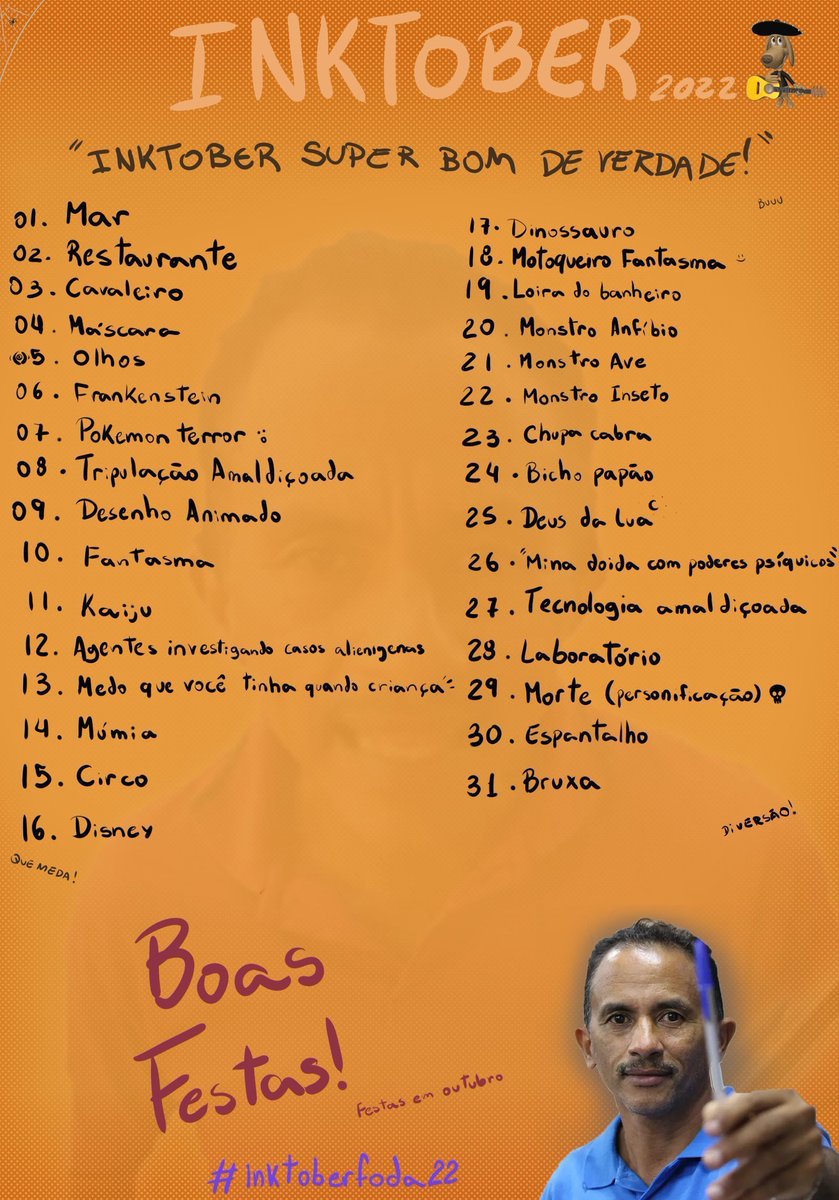 INKTOBER 2022
"INKTOBER SUPER BOM DE VERDADE!"
BUUU
01. Mar
02. Restaurante
03. Cavaleiro
04. Máscara
05. Olhos
06. Frankenstein
07. Pokemon terror
08. Tripulação Amaldiçoada
09. Desenho Animado
10. Fantasma
11. Kaiju
12. Agentes investigando casos alienigenas
13. Medo que você tinha quando criança
14. Múmia
15. Circo
16. Disney
QUE MEDA!
17. Dinossauro
18. Motoqueiro Fantasma
19. Loira do banheiro
20. Monstro Anfíbio
21. Monstro Ave
22. Monstro Inseto
23. Chupa cabra
24. Bicho papão
25. Deus da Lua
26. "Mina doida com poderes psíquicos"
27. Tecnologia amaldiçoada
28. Laboratório
29. Morte (personificação)
30. Espantalho
31. Bruxa
DIVERSÃO!
Boas
Festas!
Festas em outubro
#inktoberfoda22